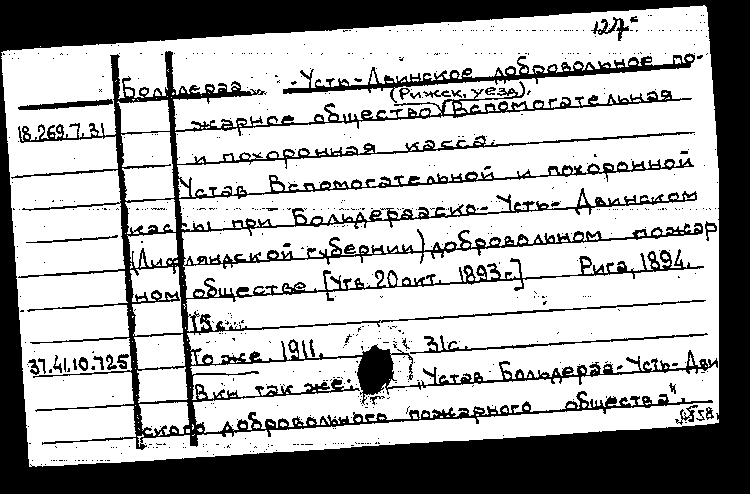 127=
Больдераа-Усть-Двинское добровольное по-
(Рижск. уезд).
18.269.7.31 жарное общество Вспомогательная
и похоронная касса.
Устав Вспомогательной и похоронной
кассы при Больдерааско-Усть-Двинском
(Лифляндской губернии) добровольном пожар
ном обществе. [Утв. 20 окт. 1893 г.] Рига, 1894.
15 с.
37.41.10.725 То же. 1911. 31 с.
В кн так же: „Устав Больдераа-Усть-Дви
ского добровольного пожарного общества".